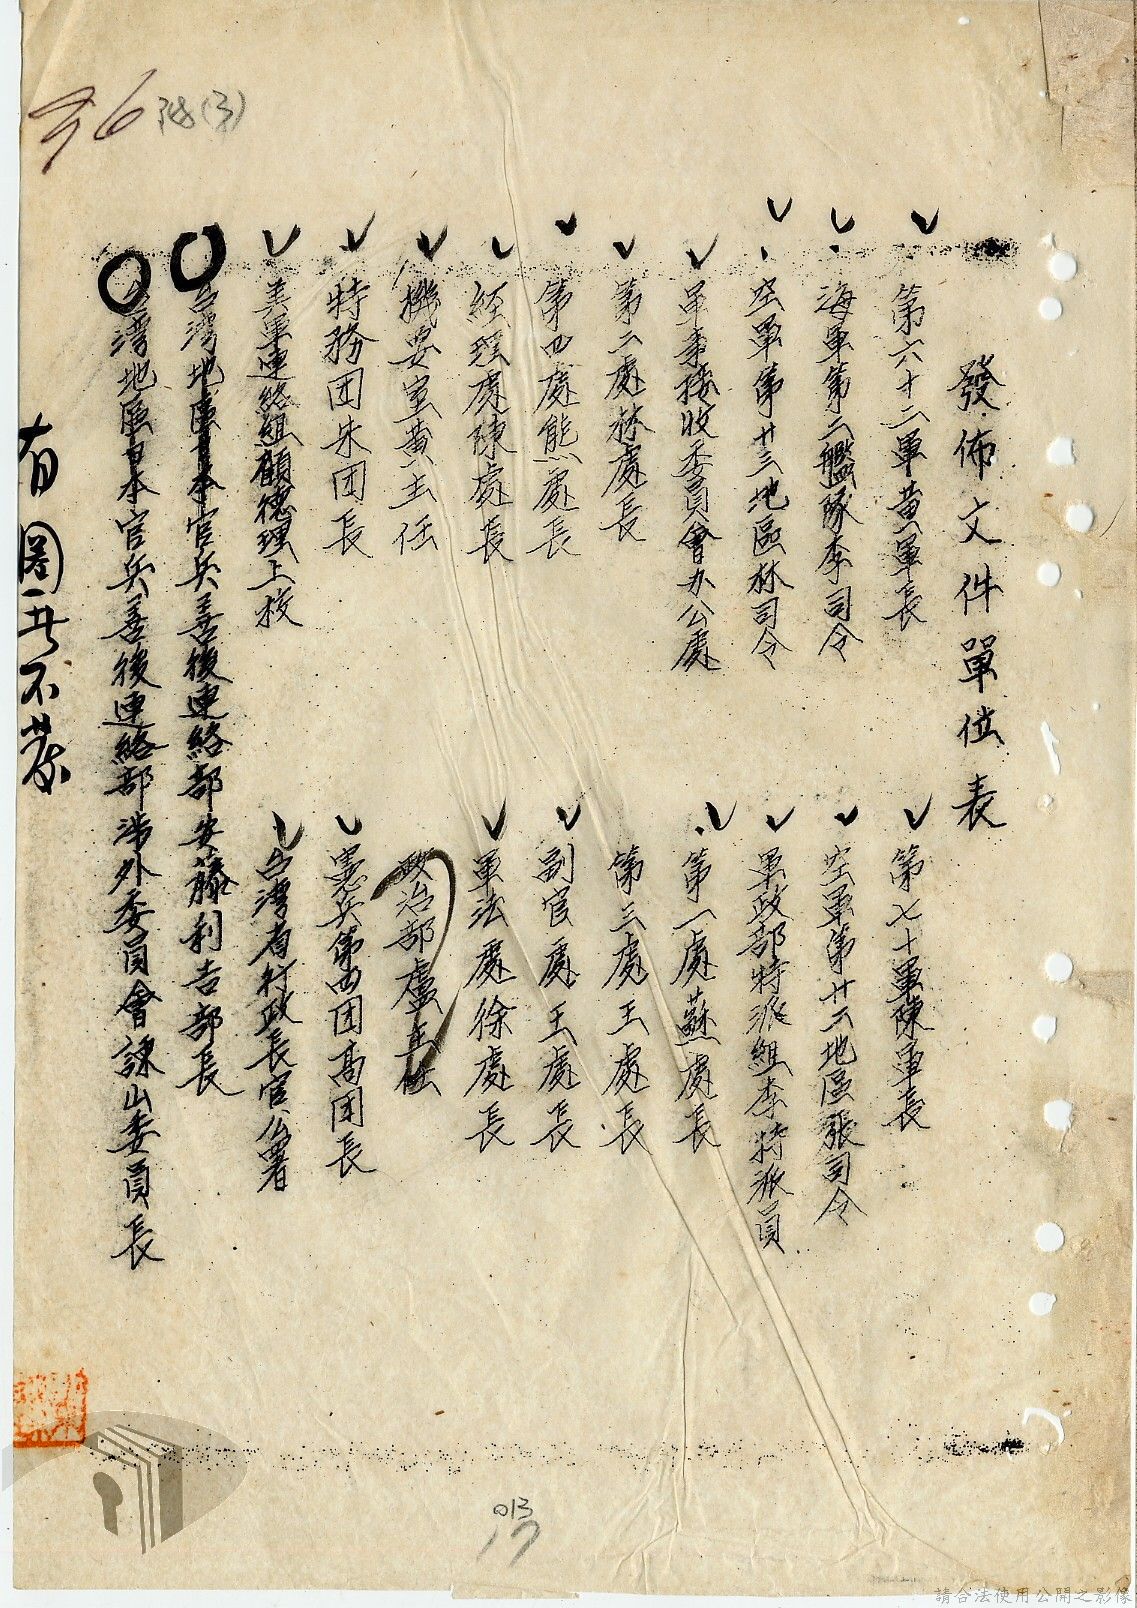 附(3)
發佈文件單位表
第六十二軍黃軍長
第七十軍陳軍長
海軍第二艦隊李司令
空軍第廿二地區張司令
空軍第廿三地區林司令
軍政部特派組李特派員
軍事接收委員會办公處
第一處蘇處長
第二處林處長
第三處王處長
第四處熊處長
副官處王處長
經理處陳處長
軍法處徐處長
機要室黃主任
政治部盧主任
特務团朱团長
憲兵第四团高团長
美軍連絡組顧德理上校
台湾省行政長官公署
台湾地區日本官兵善後連絡部安藤利吉部長
台湾地區日本官兵善後連絡部涉外委員會諫山委員長
有圈者不發
013
17
請合法使用公開之影像